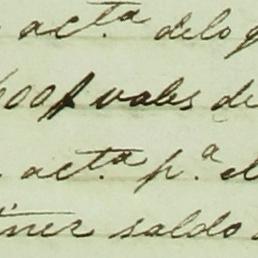 act.ª delo q
600f vales de
act.ª p.ª el
tner saldo